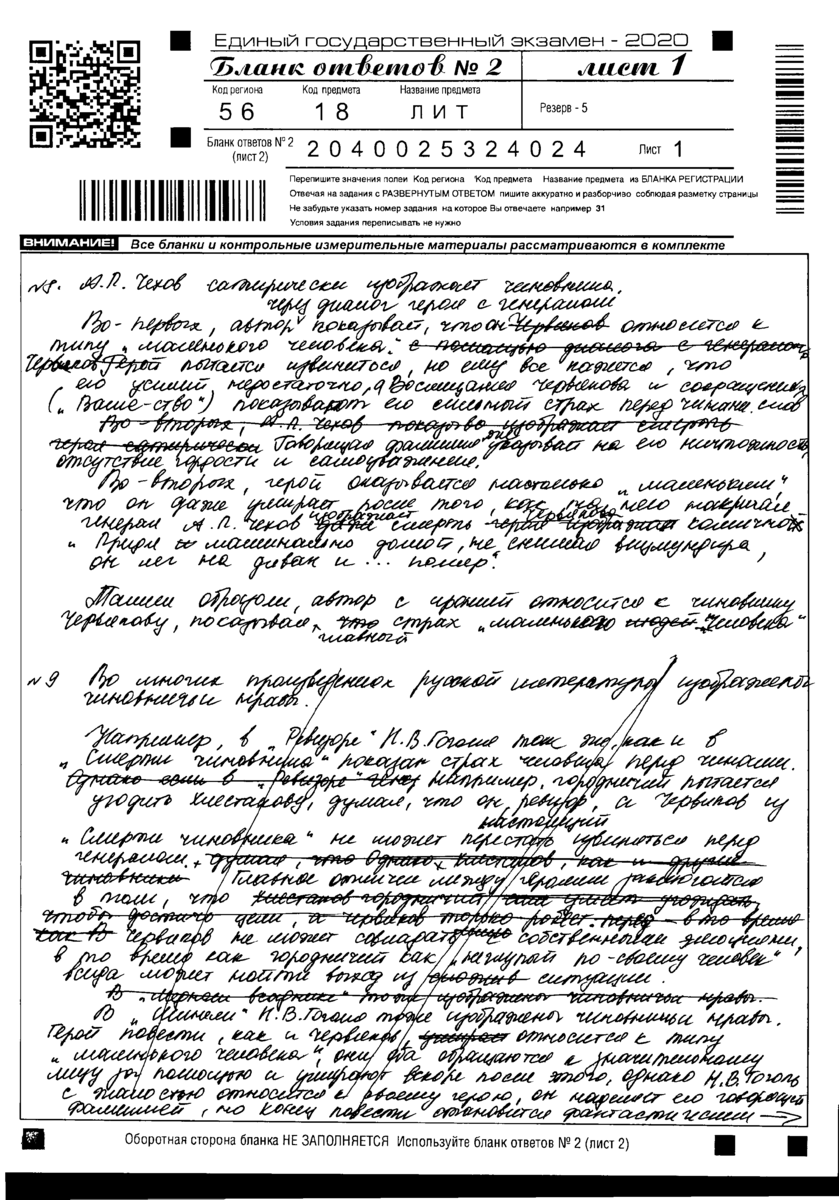 Единый государственный экзамен - 2020
Бланк ответов № 2 лист 1
Код региона Код предмета Название предмета
56 18 ЛИТ Резерв - 5
Бланк ответов № 2 (лист 2) 2040025324024 Лист 1
Перепишите значения полей Код региона Код предмета Название предмета из БЛАНКА РЕГИСТРАЦИИ
Отвечая на задания с РАЗВЕРНУТЫМ ОТВЕТОМ пишите аккуратно и разборчиво соблюдая разметку страницы
Не забудьте указать номер задания на которое Вы отвечаете например 31
Условия задания переписывать не нужно
ВНИМАНИЕ! Все бланки и контрольные измерительные материалы рассматриваются в комплекте
№8. А.П. Чехов сатирически изображает чиновника.
через диалог героя с генералом
Во-первых, автор показывает, что он Червяков относится к
типу „маленького человека". с помощью диалога с генералом
Червяков Герой пытается извиниться, но ему все кажется, что
его усилий недостаточно, а Восклицания Червякова и сокращения
(„Ваше-ство") показывают его сильный страх перед чинами. слов
Во-вторых, А.П. Чехов изображает смерть
героя сатирически Говорящая фамилия указывает на его ничтожность,
отсутствие гордости и самоуважения.
Во-вторых, герой оказывается настолько „маленьким",
что он даже умирает после того, как на него накричал
генерал А.П. Чехов изображает смерть героя Червякова комичной:
„Придя машинально домой, не снимая вицмундира,
он лег на диван и... помер".
Таким образом, автор с иронией относится к чиновнику
Червякову, показывая, что страх „маленького людей человека"
главный
№9 Во многих произведениях русской литературы изображены
чиновничьи нравы.
Например, в „Ревизоре" Н.В. Гоголя так же, как и в
„Смерти чиновника" показан страх человека перед чинами.
Однако если в „Ревизоре" Например, городничий пытается
угодить Хлестакову, думая, что он ревизор, а Червяков из
настоящий
„Смерти чиновника" не может перестать извиняться перед
генералом. думая, что Однако, Хлестаков, как и другие
чиновники Главное отличие между героями заключается
в том, что городничий умеет
чтобы достичь цели, а Червяков только перед - в то время
как В Червяков не может совладать с собственными эмоциями,
в то время как городничий как „неглупый по-своему человек"
всегда может найти выход из ситуации.
В „Медном всаднике" тоже изображены чиновничьи нравы.
В „Шинели" Н.В. Гоголя тоже изображены чиновничьи нравы.
Герой повести, как и Червяков, умирает относится к типу
„маленького человека", они оба обращаются к значительному
лицу за помощью и умирают вскоре после этого, однако Н.В. Гоголь
с жалостью относится к своему герою, он наделяет его говорящей
фамилией, но конец повести становится фантастическим →
Оборотная сторона бланка НЕ ЗАПОЛНЯЕТСЯ Используйте бланк ответов № 2 (лист 2)